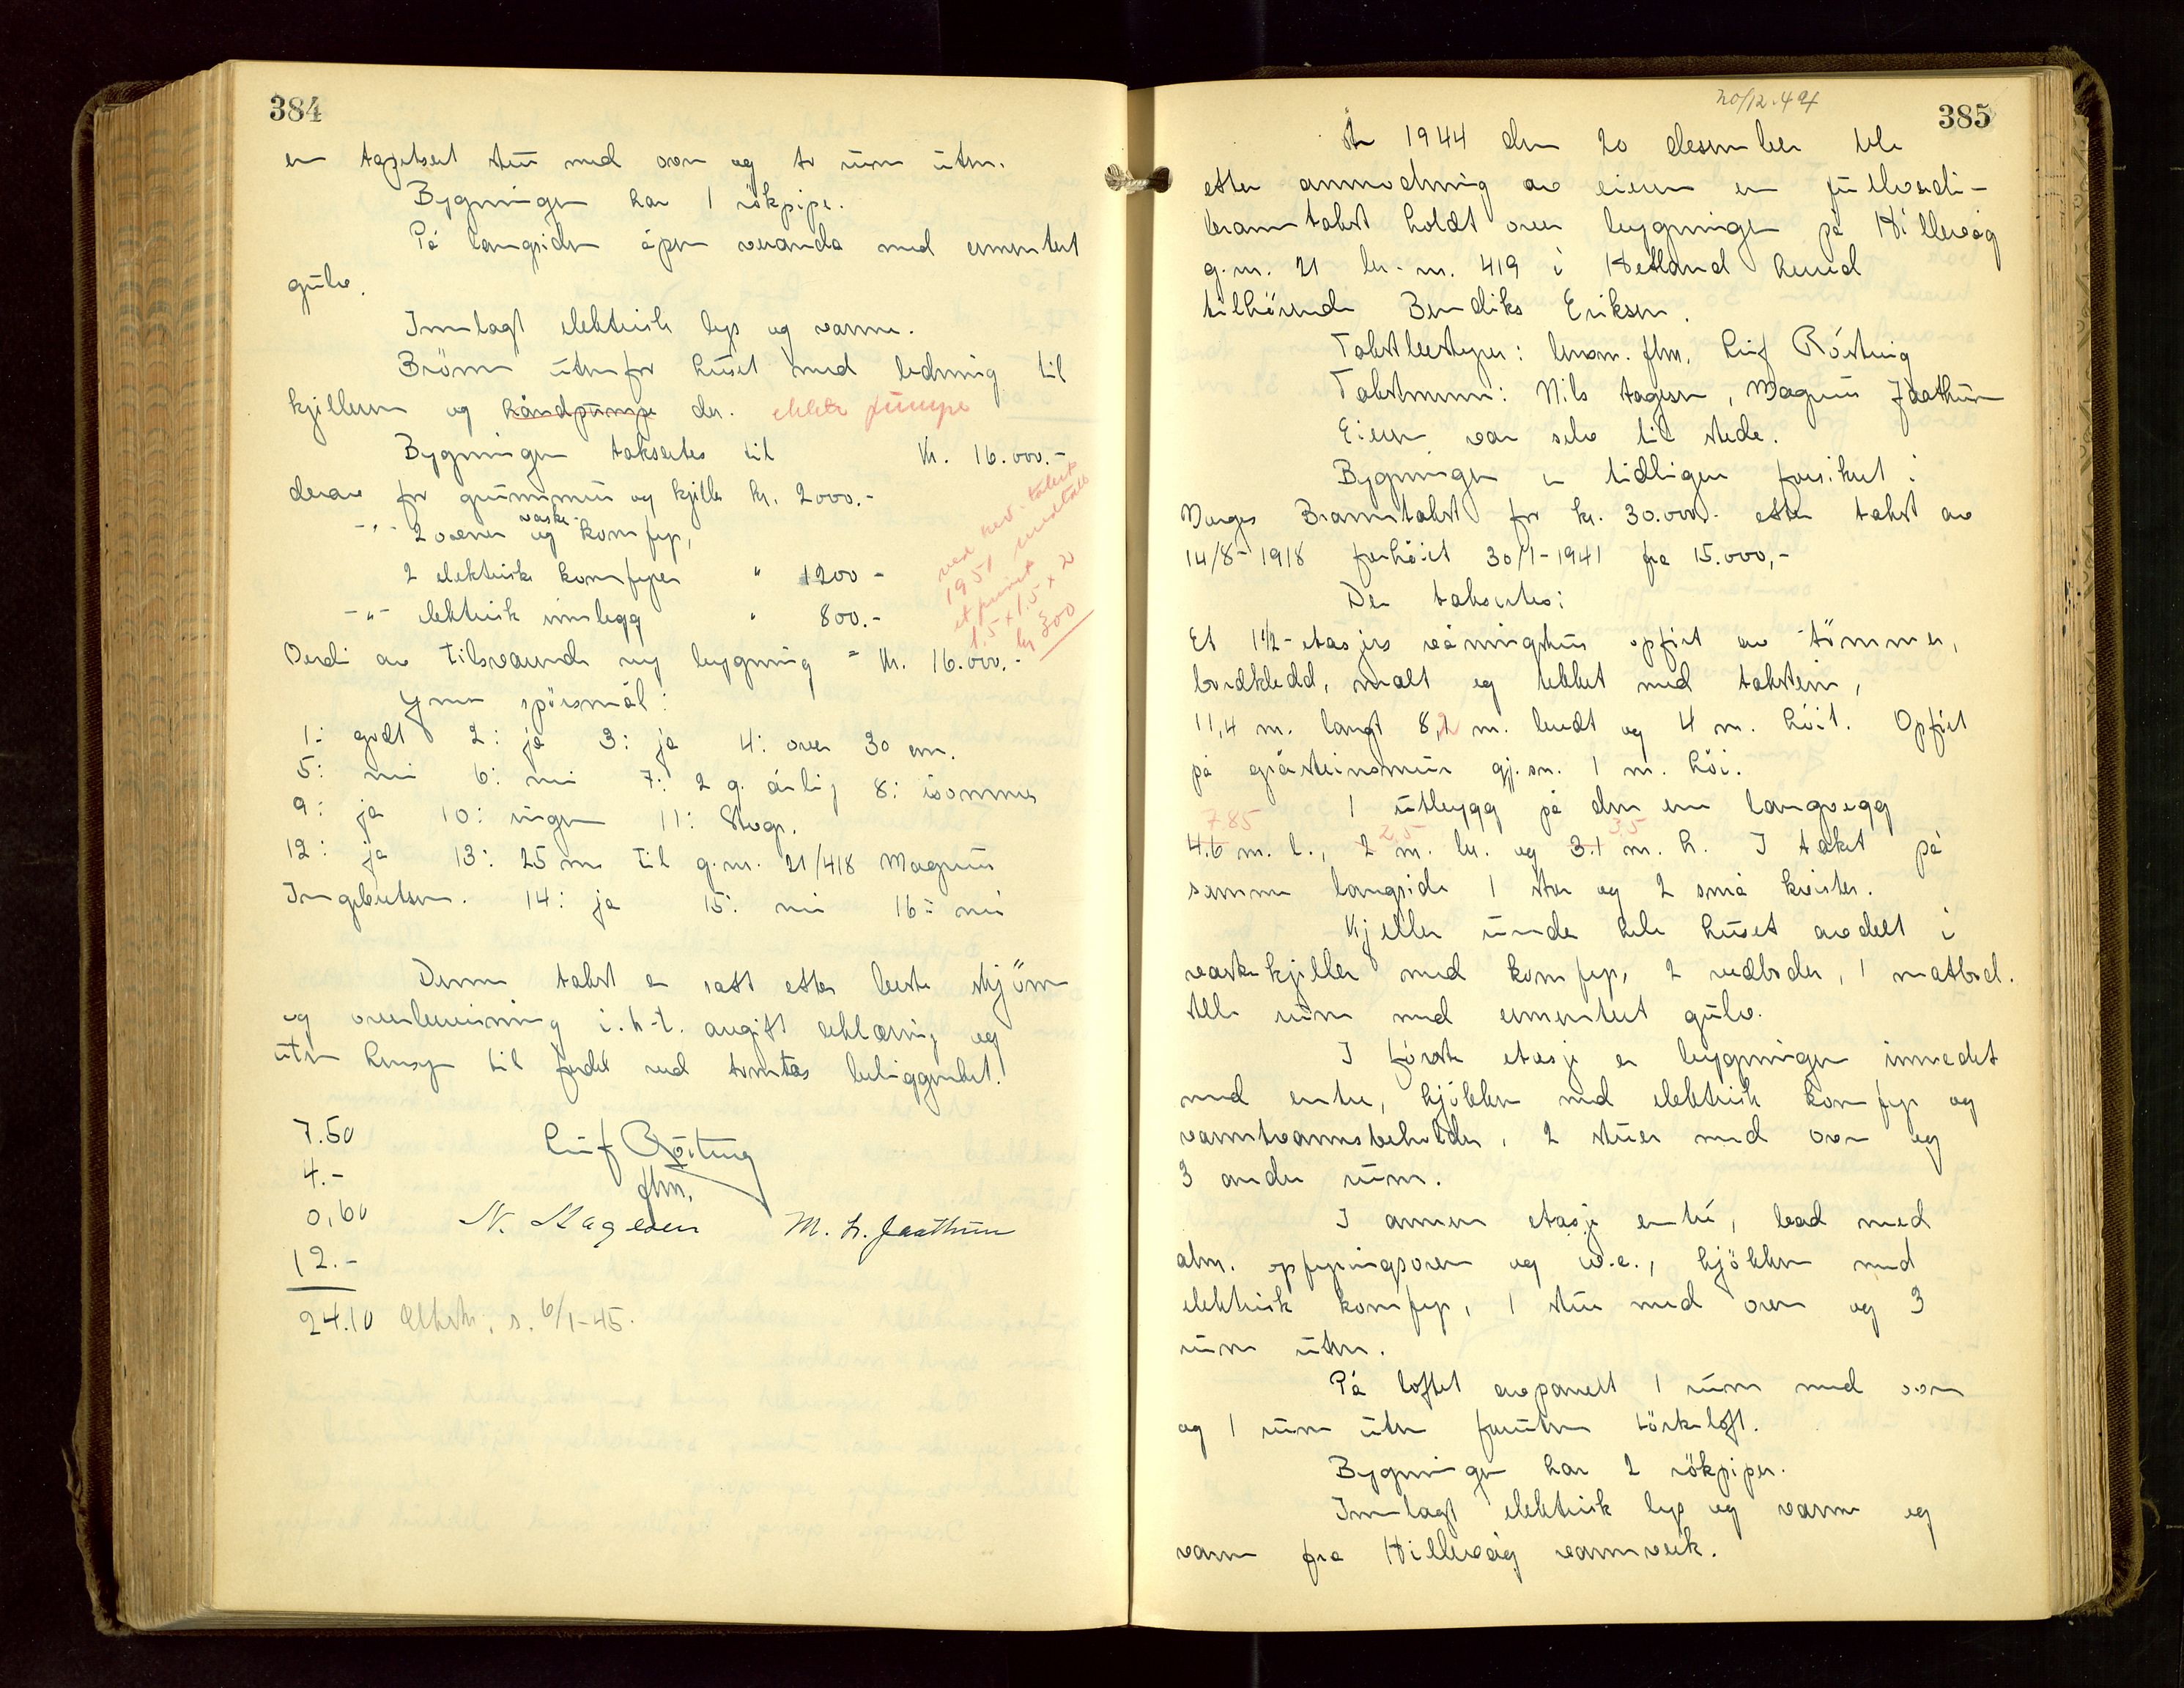 384
en tapetsert stue med ovn og to rum uten.
Bygningen har 1 rökpipe.
På langsiden åpen veranda med cementert
gulv.
Innlagt elektrisk lys og varme.
Brönn utenfor huset med ledning til
kjelleren og håndpumpe der. elektr pumpe
Bygningen takseres til Kr. 16.000.-
derav for grunnmur og kjeller kr. 2000.-
-"- 2 ovner og vaske-komfyr,
2 elektriske komfyrer " 1200 -
-"- elektrisk innlegg " 800.-
ved rev. takst
1951
et
1.5 x 1.5 x 2
kr 300
Verdi av tilsvarende ny bygning = Kr. 16.000.-
Ymse spörsmål:
1: godt 2: ja 3: ja 4: over 30 cm.
5: nei 6: nei 7: 2 g. årlig 8: isommer
9: ja 10: ingen 11: Stogr.
12: ja 13: 25 m til g.nr. 21/418 Magnus
Ingebretsen. 14: ja 15: nei 16: nei
Denne takst er satt etter beste skjönn
og overbevisning i.h.t. avgitt erklæring og
uten hensyn til fordel ved tomtas beliggenhet.
7.50
4.-
0,60
12.-
24.10
Leif Röstrup
flm.
N. Aagesen M. L. Jaathun
s. 6/1-45.
20/12.44
385
År 1944 den 20 desember ble
etter anmodning av eieren en fullverdi-
branntakst holdt over bygningen på Hillevåg
g.nr. 21 br.nr. 419 i Hetland herred
tilhörende Bendiks Eriksen.
Takstbestyrer: lensm. flm. Leif Röstrup
Takstmenn: Nils Aagesen, Magnus Jaathun
Eieren var selv til stede.
Bygningen er tidligere forsikret i
Norges Branntakst for kr. 30.000.- etter takst av
14/8-1918 forhöiet 30/1-1941 fra 15.000,-
Der takseres:
Et 1 1/2-etasjers våningshus opfört av tömmer,
bordkledd, malt og tekket med takstein,
11,4 m. langt 8,2 m. bredt og 4 m. höit. Opfört
på gråsteinsmur gj.sn. 1 m. höi.
1 utbygg på den ene langvegg
7.85 2,5 3,5
4.6 m. l., 2 m. br. og 3.1 m. h. I taket på
samme langside 1 stor og 2 små kvister.
Kjeller under hele huset avdelt i
vaskekjeller med komfyr, 2 vedboder, 1 matbod.
Alle rum med cementert gulv.
I förste etasje er bygningen innredet
med entre, kjökken med elektrisk komfyr og
varmtvannsbeholder, 2 stuer med ovn og
3 andre rum.
I annen etasje entré, bad med
alm. opfyringsovn og w.c., kjökken med
elektrisk komfyr, 1 stue med ovn og 3
rum uten.
På loftet avpanelt 1 rum med ovn
og 1 rum uten foruten törkeloft.
Bygningen har 2 rökpiper.
Innlagt elektrisk lys og varme og
vann fra Hillevåg vannverk.